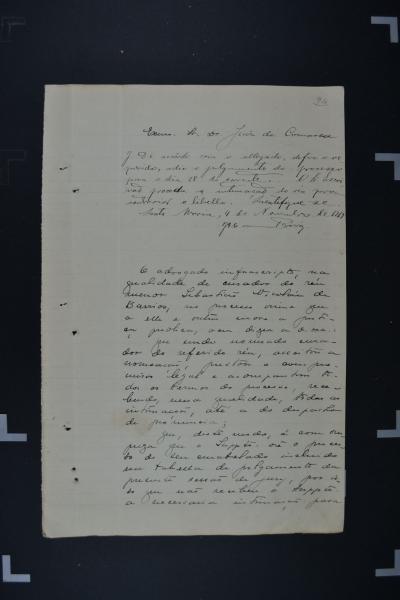 94
Exmo. Sr. Dr. Juiz de Comarca
J. De accôrdo com o allegado, defiro o re
querido, adio o julgamento do processo
para o dia 28 do corrente. O Sr. escri
vão proceda a intimação do réu para
o libello. Scientifique-se.
4 de Novembro de
O advogado infrascripto, na
qualidade de curador do réu
menor Sebastião de
Barros, no processo crime que
a elle e outro move a justi
ça publica, vem dizer a V. Exa.:
que sendo nomeado cura
dor do referido réu, acceitou a
nomeação, prestou o compro
misso legal e acompanhou to
dos os termos do processo, rece
bendo, nessa qualidade, todas as
intimações, até a do despacho
de pronuncia;
que, deste modo, é com sur
preza que o Suppte. vê o proces
so de seu curatelado incluido
na tabella de julgamento da
presente sessão do jury, por is
so que não recebeu o Suppte
a necessaria intimação para